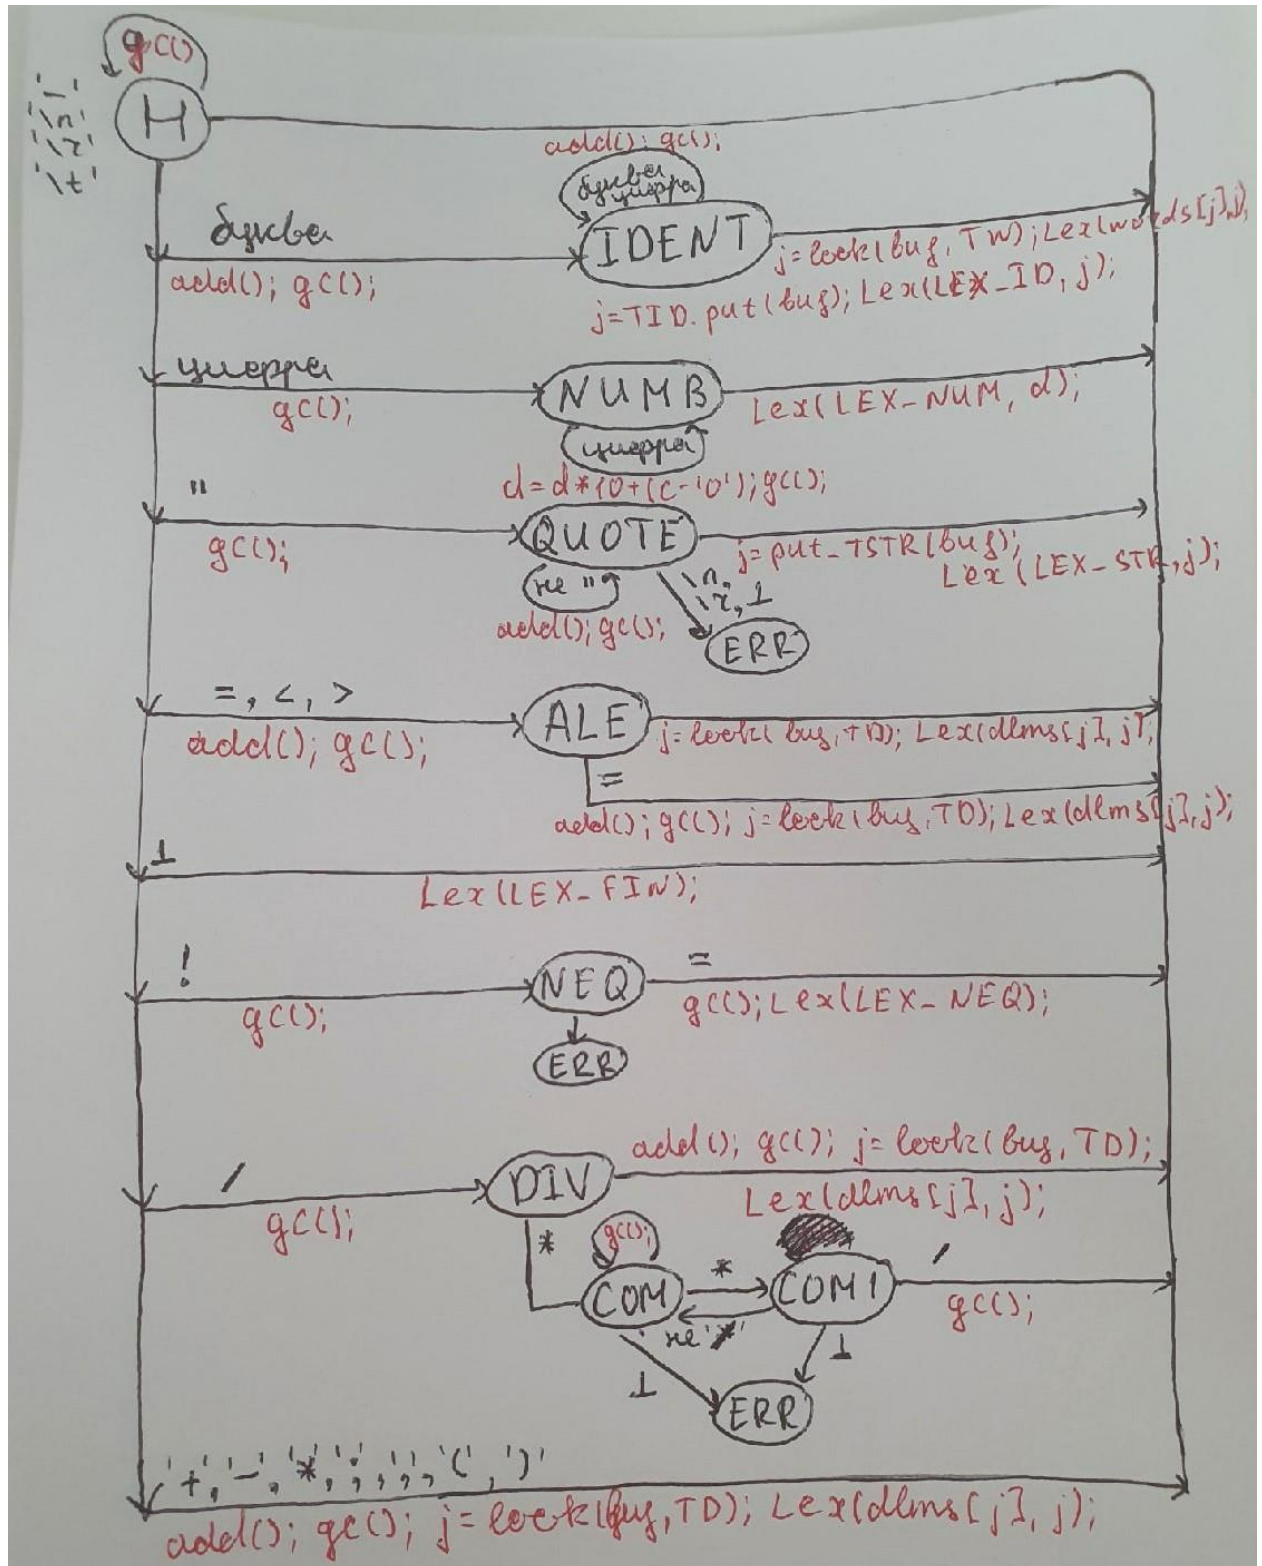 gc()
'_'
'\n'
'\r'
'\t'
H
add(); gc();
буква
цифра
буква
IDENT
add(); gc();
j=look(buf, TW); Lex(words[j],j);
j=TID.put(buf); Lex(LEX_ID, j);
цифра
NUMB
gc();
Lex(LEX_NUM, d);
цифра
d=d*10+(c-'0'); gc();
"
QUOTE
gc();
j=put_TSTR(buf);
Lex(LEX_STR, j);
не "
\n,
\r, ⊥
add(); gc();
ERR
=, <, >
ALE
add(); gc();
j=look(buf, TD); Lex(dlms[j], j);
=
add(); gc(); j=look(buf, TD); Lex(dlms[j], j);
⊥
Lex(LEX_FIN);
!
NEQ
=
gc();
gc(); Lex(LEX_NEQ);
ERR
add(); gc(); j=look(buf, TD);
/
DIV
gc();
Lex(dlms[j], j);
*
gc();
COM
*
COM1
/
gc();
не
⊥
⊥
ERR
'+', '-', '*', ';', ',', '(', ')'
add(); gc(); j=look(buf, TD); Lex(dlms[j], j);